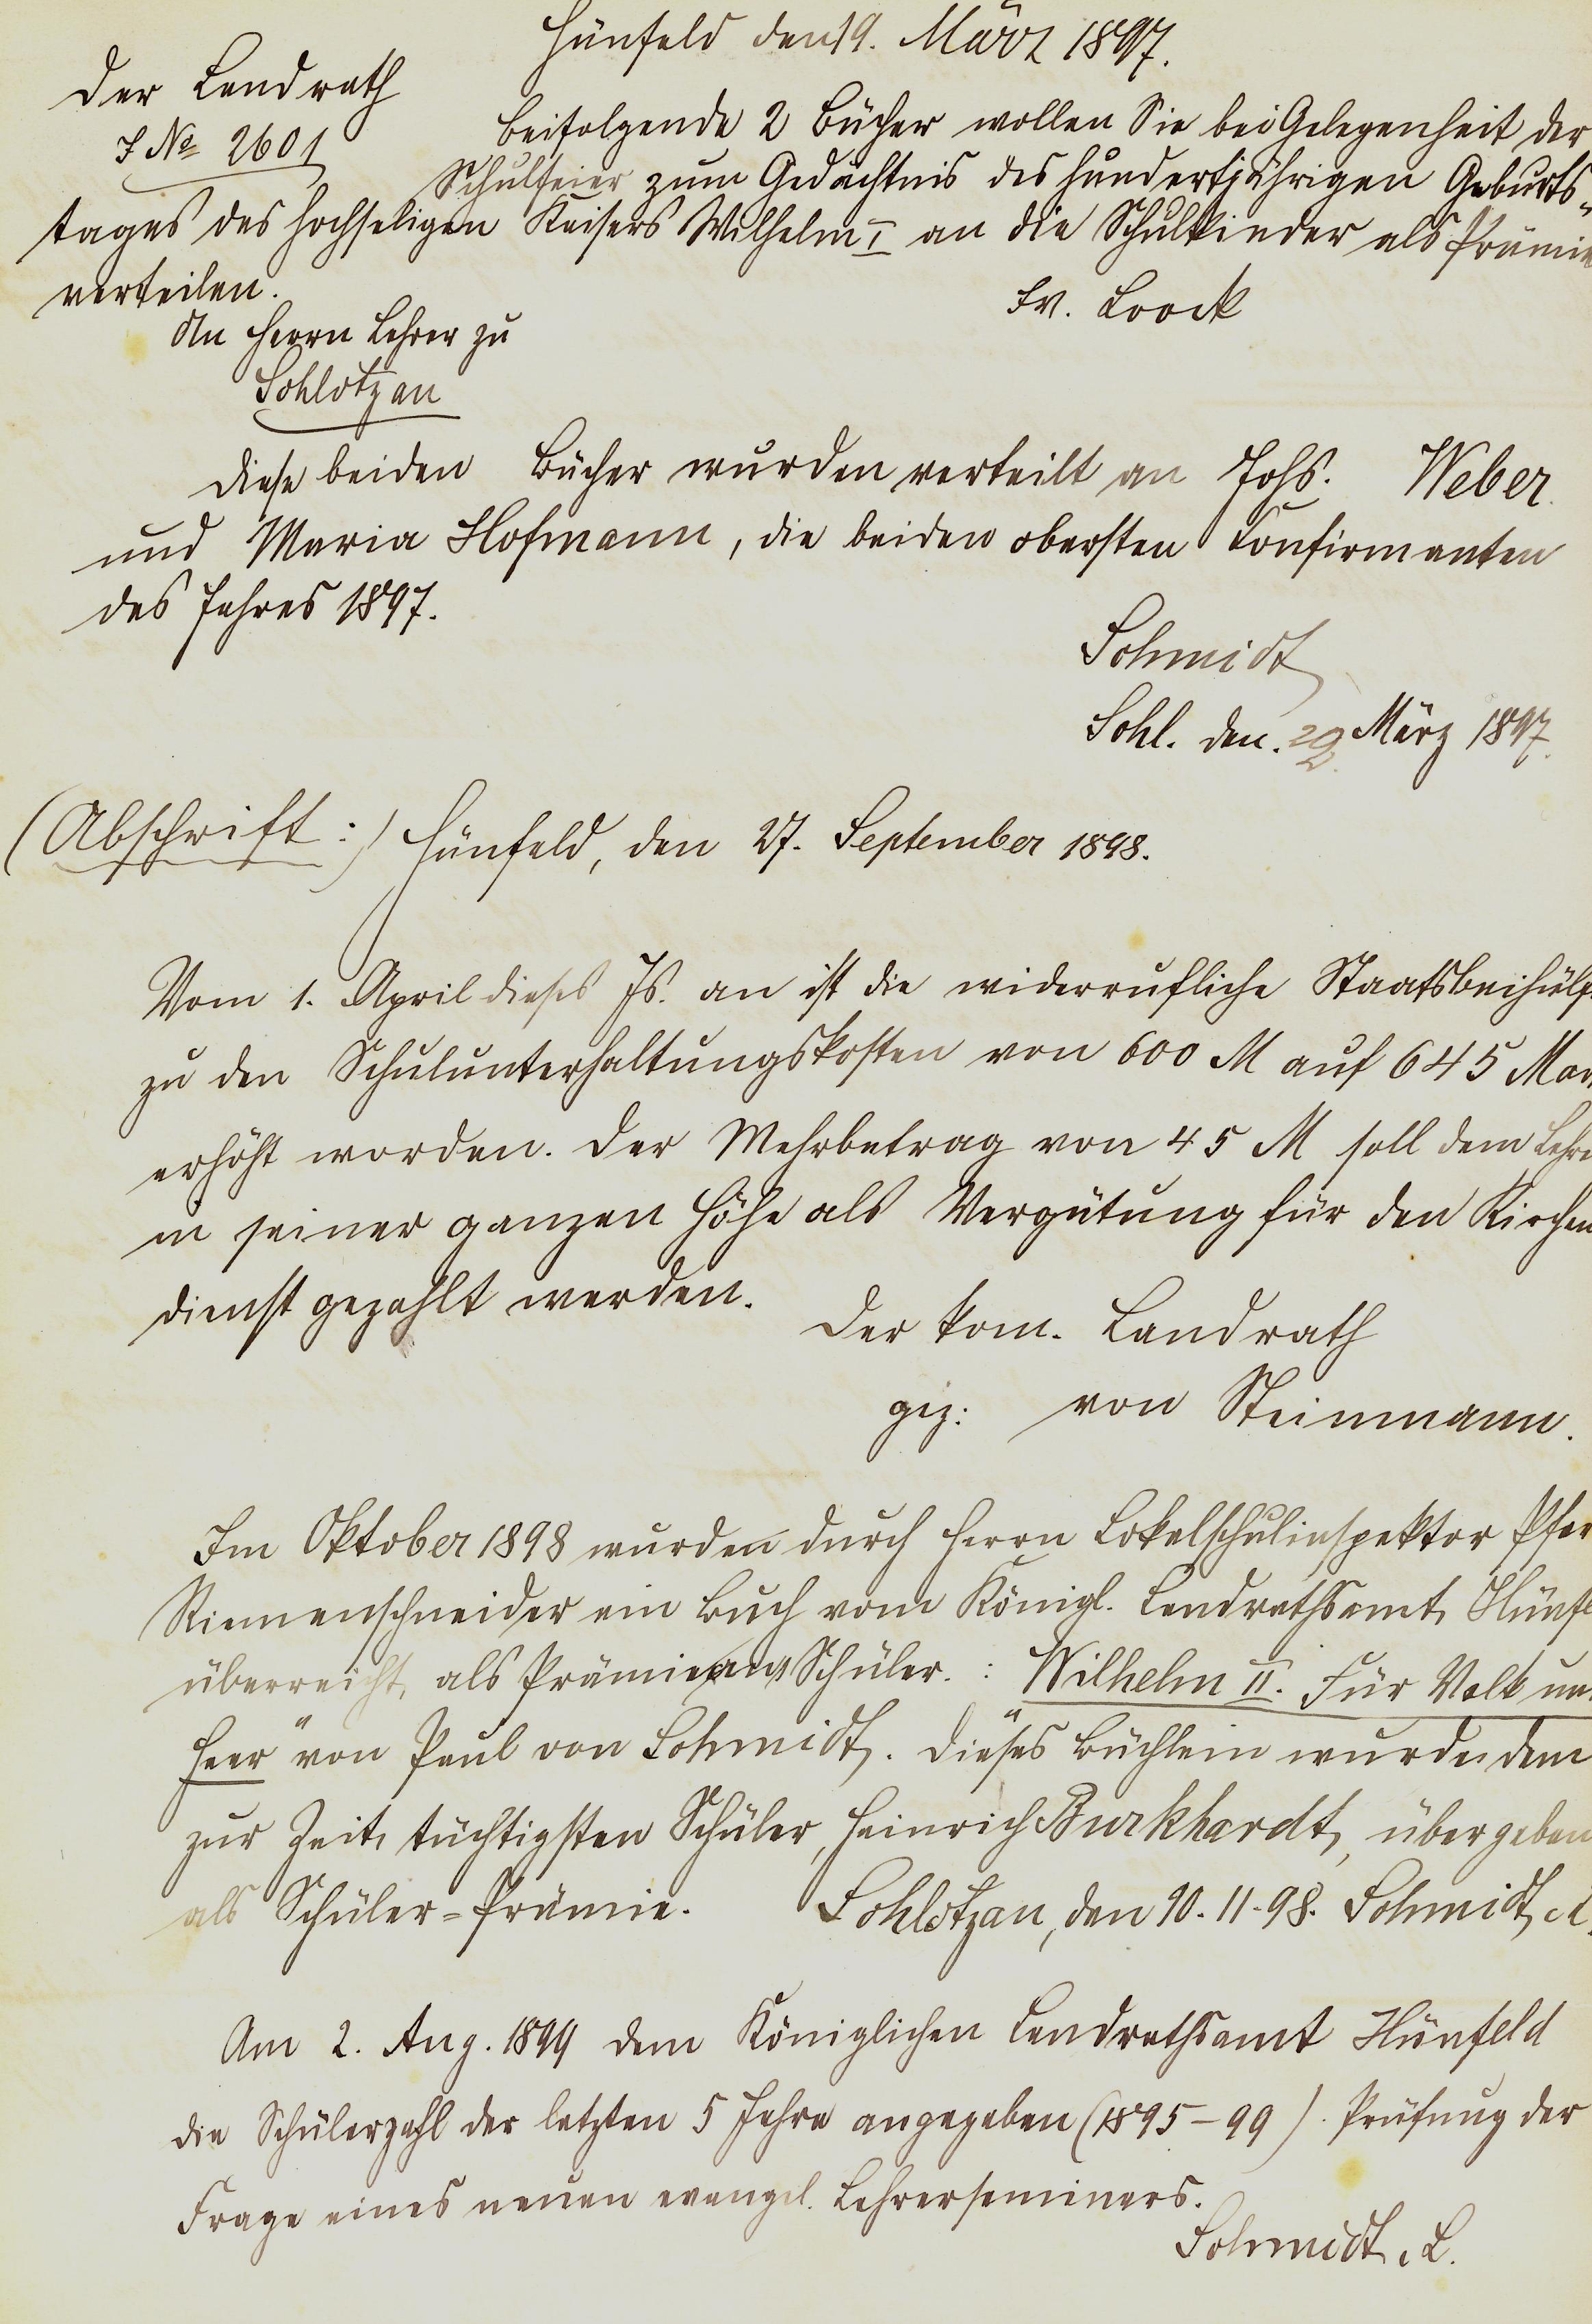 Hünfeld den 19. März 1897.
Der Landrath
J № 2601
Beifolgende 2 Bücher wollen Sie bei Gelegenheit der
Schulfeier zum Gedächtnis des hundertjährigen Geburts-
tages des hochseligen Kaisers Wilhelm I an die Schulkinder als Prämie
verteilen.
Fv. Loock
An Herrn Lehrer zu
Schlotzau
Diese beiden Bücher wurden verteilt an Johs. Weber
und Maria Hofmann, die beiden obersten Konfirmanten
des Jahres 1897.
Schmidt
Schl. den. 22. März 1897.
(Abschrift:) Hünfeld, den 27. September 1898.
Vom 1. April dieses Js. an ist die widerrufliche Staatsbeihülf
zu den Schulunterhaltungskosten von 600 M auf 645 Mar
erhöht worden. Der Mehrbetrag von 45 M soll dem Lehre
in seiner ganzen Höhe als Vergütung für den Kirchen
dienst gezahlt werden.
Der kom. Landrath
gez: von Steinmann.
Im Oktober 1898 wurden durch Herrn Lokalschulinspektor Pfar
Riemenschneider ein Buch vom Königl. Landrathsamt Hünfe
überreicht, als Prämie an Schüler.: Wilhelm II. Für Volk un
Heer" von Paul von Schmidt. Dieses Büchlein wurde dem
zur Zeit tüchtigsten Schüler, Heinrich Burkhardt, übergeben
als Schüler-Prämie. Schlotzau, den 10.11.98. Schmidt, L.
Am 2. Aug. 1899 dem Königlichen Landrathsamt Hünfeld
die Schülerzahl der letzten 5 Jahre angegeben (1895-99). Prüfung der
Frage eines neuen evangel. Lehrerseminars.
Schmidt, L.